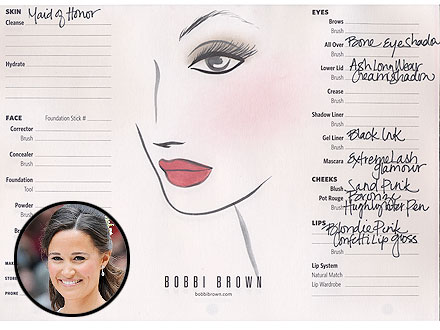 SKIN Maid of Honor
Cleanse
Hydrate
FACE
Foundation Stick #
Corrector
Brush
Concealer
Brush
Foundation
Tool
Powder
Brush
BOBBI BROWN
bobbibrown.com
EYES
Brows
Brush
All Over Bone Eyeshado
Brush
Lower Lid Ash Long Wear
Brush Cream shadow
Crease
Brush
Shadow Liner
Brush
Gel Liner Black Ink
Brush
Mascara Extreme Lash
glamour
CHEEKS
Blush Sand Pink
Brush
Pot Rouge Bronze
Brush Highlighter Pen
LIPS Blondie Pink
Confetti Lip gloss
Brush
Lip System
Natural Match
Lip Wardrobe
PHONE